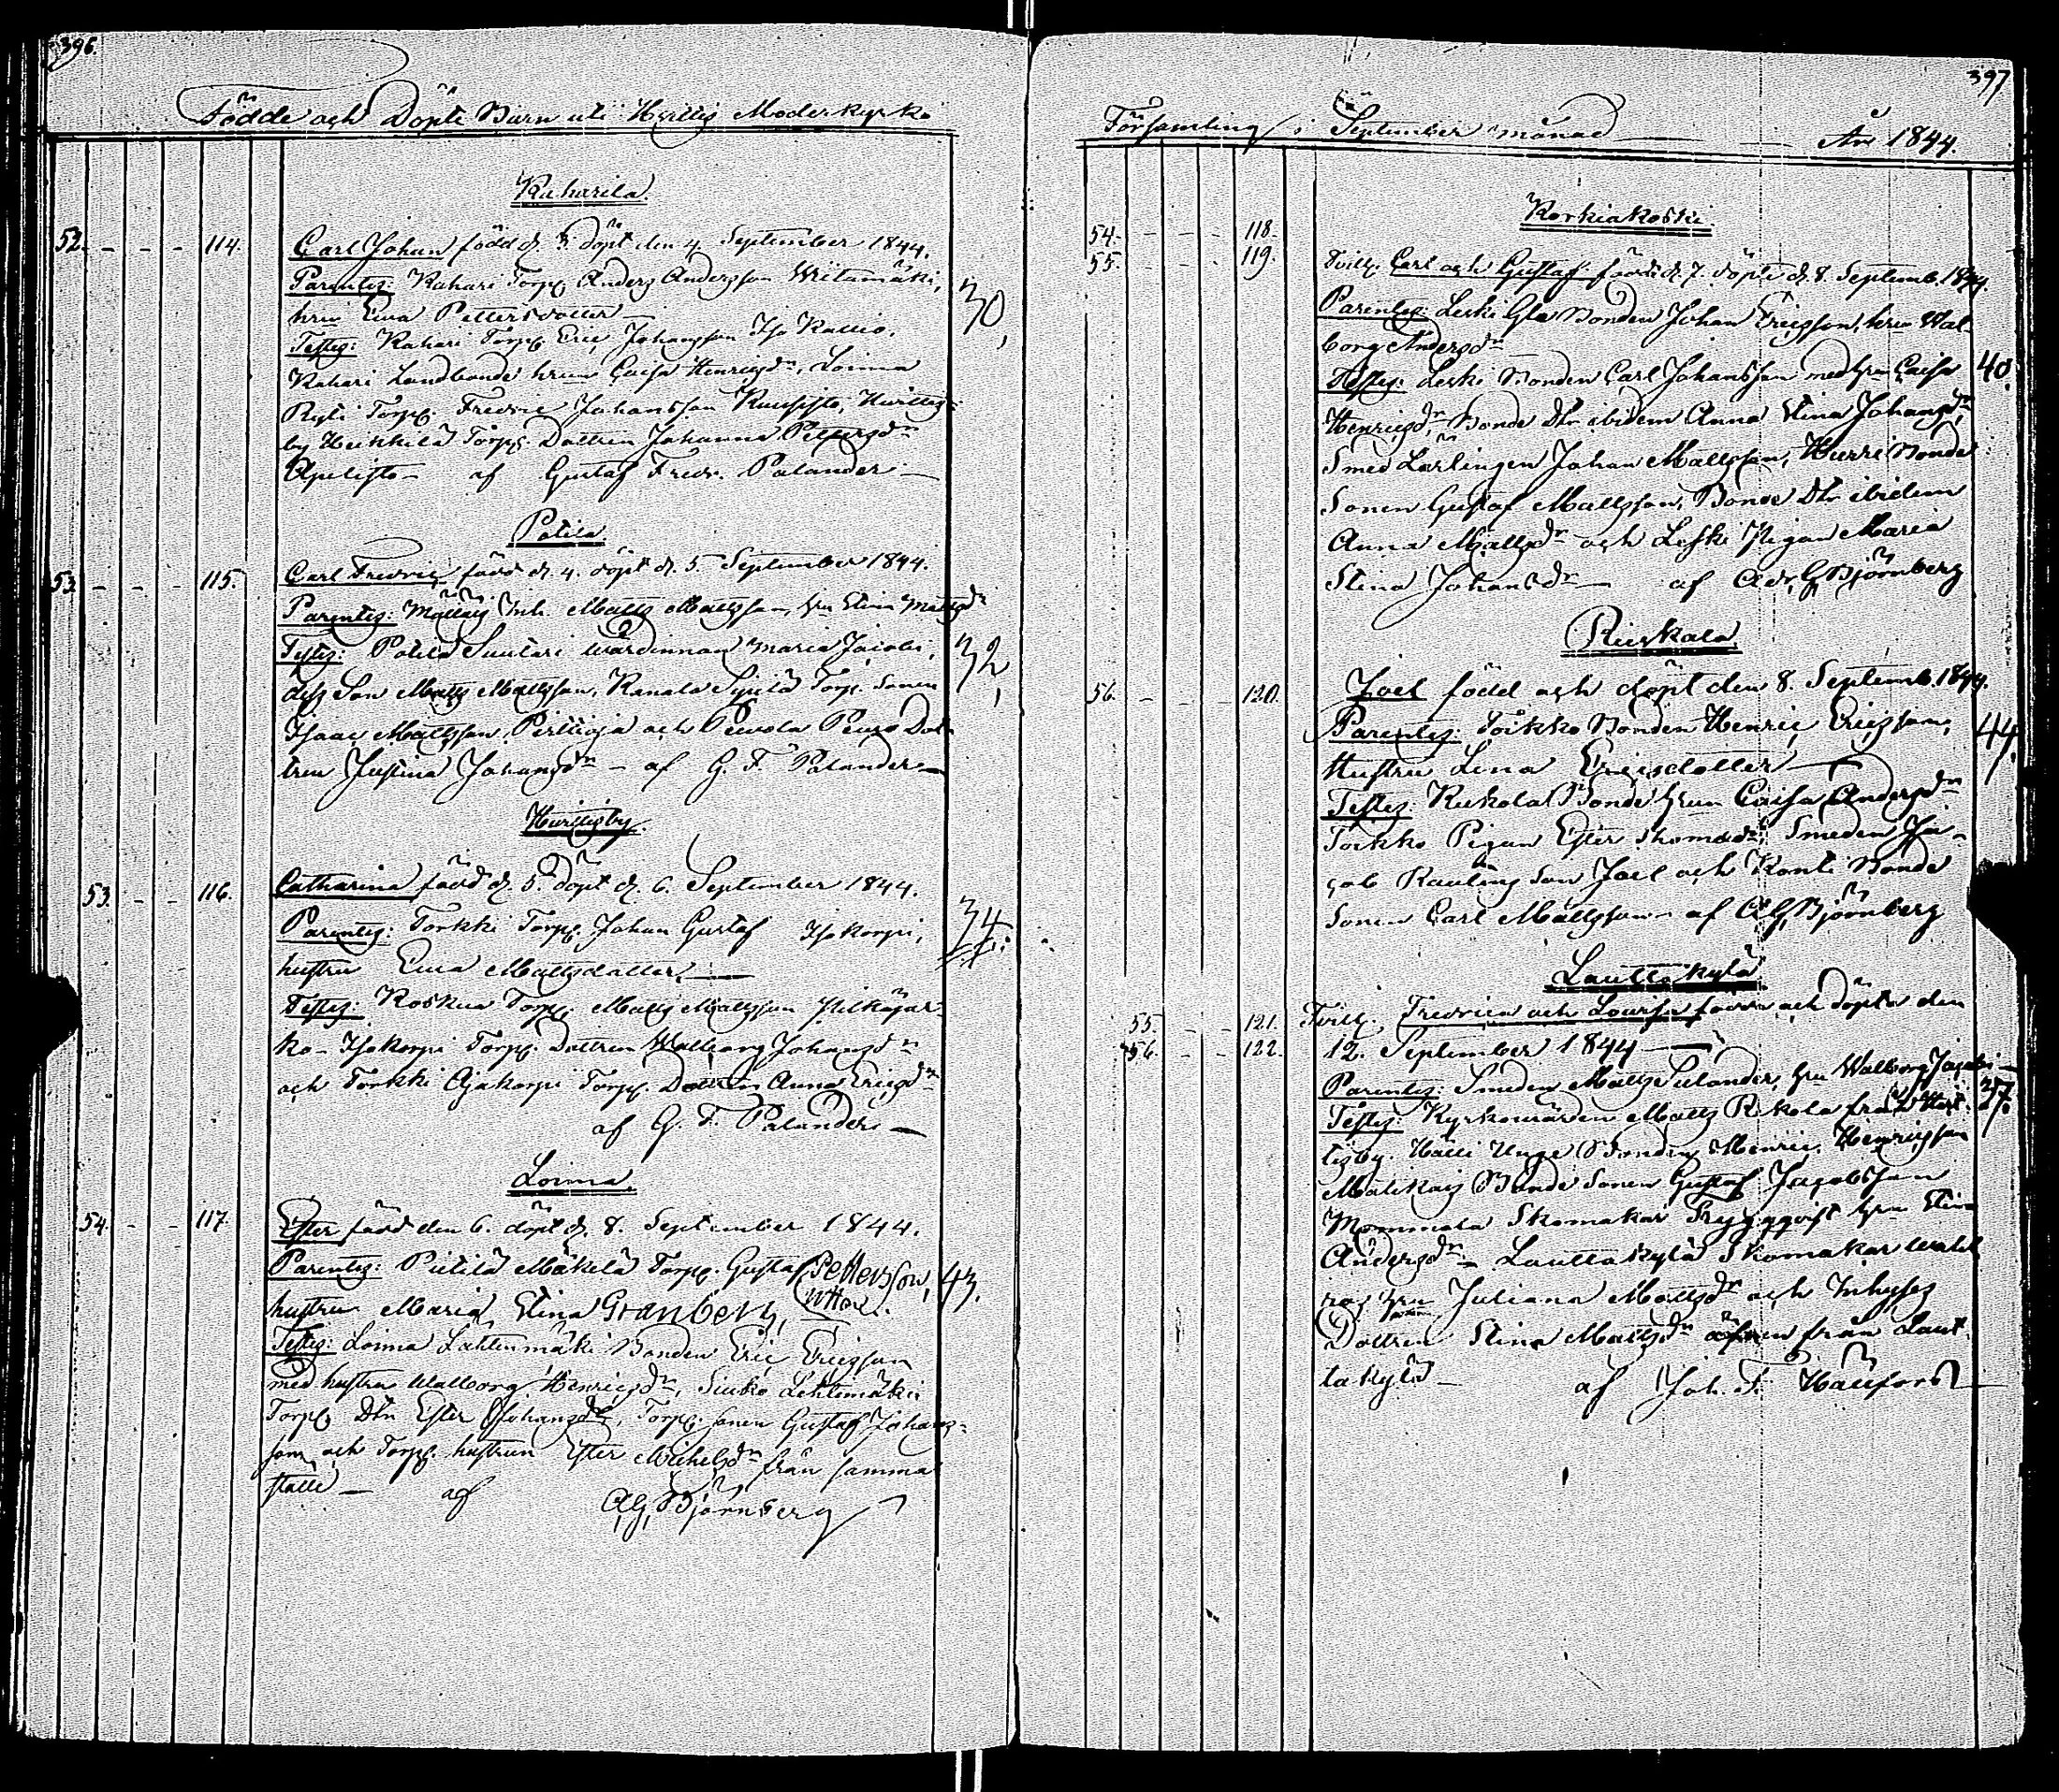 396.
Födde och Döpte Barn uti Hvittis Moderkyrko
Kaharila.
52. - - - 114. Carl Johan född d. 3. döpt den 4. September 1844.
Parentes: Kahari Torp. Anders Andersson Wiitamäki,
hru Eva Pettersdotter — 30
Testes: Kahari Torp. Eric Johansson Iso Kallio,
Kahari Landbonde hrun Caisa Henricsdr, Loima
Ryti Torp. Fredric Johansson Kuusisto, Huittis-
by Heikkilä Torp. Dottren Johanna Pettersdr
af Gustaf Fredr. Palander —
Potila.
53. - - - 115. Carl Fredric född d. 4. döpt d. 5. September 1844.
Parentes: Inh. Matts Mattsson, hru Stina Mattsdr
Testes: Potila Suutari Wärdinnan Maria Jacobi, 32
dess Son Matts Mattsson, Kanala Sipilä Torp. Sonen
Isaac Mattsson, och Peura Dot-
tren Justina Johansdr — af G. F. Palander —
Huittisby.
53. - - 116. Catharina född d. 5. döpt d. 6. September 1844.
Parentes: Torkki Torp. Johan Gustaf Isokorpi, 34
hustru Eva Mattsdotter —
Testes: Torp. Matts Mattsson
ko — Isokorpi Torp. Dottren Walborg Johansdr
och Torkki Ajakorpi Torp. Dottren Anna Ericsdr
af G. F. Palander —
Loima.
54. - - 117. Ester född den 6. döpt d. 8. September 1844.
Parentes: Mäkelä Torp. Gustaf Pettersson, 43.
hustru Maria Stina Granberg,
Testes: Loima Lähteenmäki Bonden Eric Ericsson
med hustru Walborg Henricsdr, Lehtimäki
Torp. Dtr Ester Johansdr, Torp. sonen Gustaf Johans-
son och Torp. hustrun Ester Michelsdr från samma
ställe — af A. G. Björnberg
397
Församling i September månad — År 1844.
Korkiakoski.
54. - - - 118.
55. - - - 119. Tvill. Carl och Gustaf födde d. 7. döpte d. 8. Septemb. 1844.
Parentes: Leski Gla Bonden Johan Ericsson, hru Wal-
borg Andersdr —
Testes: Leski Bonden Carl Johansson med hru Caisa 40.
Henricsdr, Bonde Dtr ibidem Anna Stina Johansdr,
Smed Lärlingen Johan Mattsson, Hurri Bonde
Sonen Gustaf Mattsson, Bonde Dtr ibidem
Anna Mattsdr och Leski Pigan Maria
Stina Johansdr — af Adr. G. Björnberg
Rieskala.
56. - - - 120. Joel född och döpt den 8. Septemb. 1844.
Parentes: Töikko Bonden Henric Ericsson, 44.
Hustru Lena Ericsdotter —
Testes: Bonde hrun Caisa Andersdr
Töikko Pigan Ester Thomasdr, Smeden Ja-
cob Rautings Son Joel och Konti Bonde
Sonen Carl Mattsson — af A. G. Björnberg
Lauttakylä
55. - - 121. Tvill. Fredrica och Lovisa födda och döpta den
56. - - 122. 12. September 1844 —
Parentes: Smeden Matts Selander, hru Walborg Jacobi — 37.
Testes: Kyrkovärden Matts Rekola från Huit-
tisby. Hälli Unge Bonden Henric Henricsson
Bonde Sonen Gustaf Jacobsson
Mommola Skomakar hru Stina
Andersdr — Lauttakylä Skomakar Wahl-
ros hru Juliana Mattsdr och Inhyses
Dottren Stina Mattsdr äfven från Laut-
takylä — af Joh. F. Hällfors